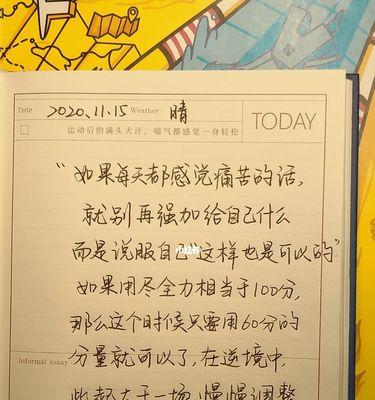 Date: 2020.11.15 Weather: 晴
运动后的满头大汗，喘气都感觉一身轻松
TODAY
“如果每天都感觉痛苦的话，
就别再强加给自己什么
而是说服自己“这样也是可以的”
如果用尽全力相当于100分，
那么这个时候只要用60分的
Informal essay
分量就可以了，在逆境中，
比起大干一场，慢慢调整